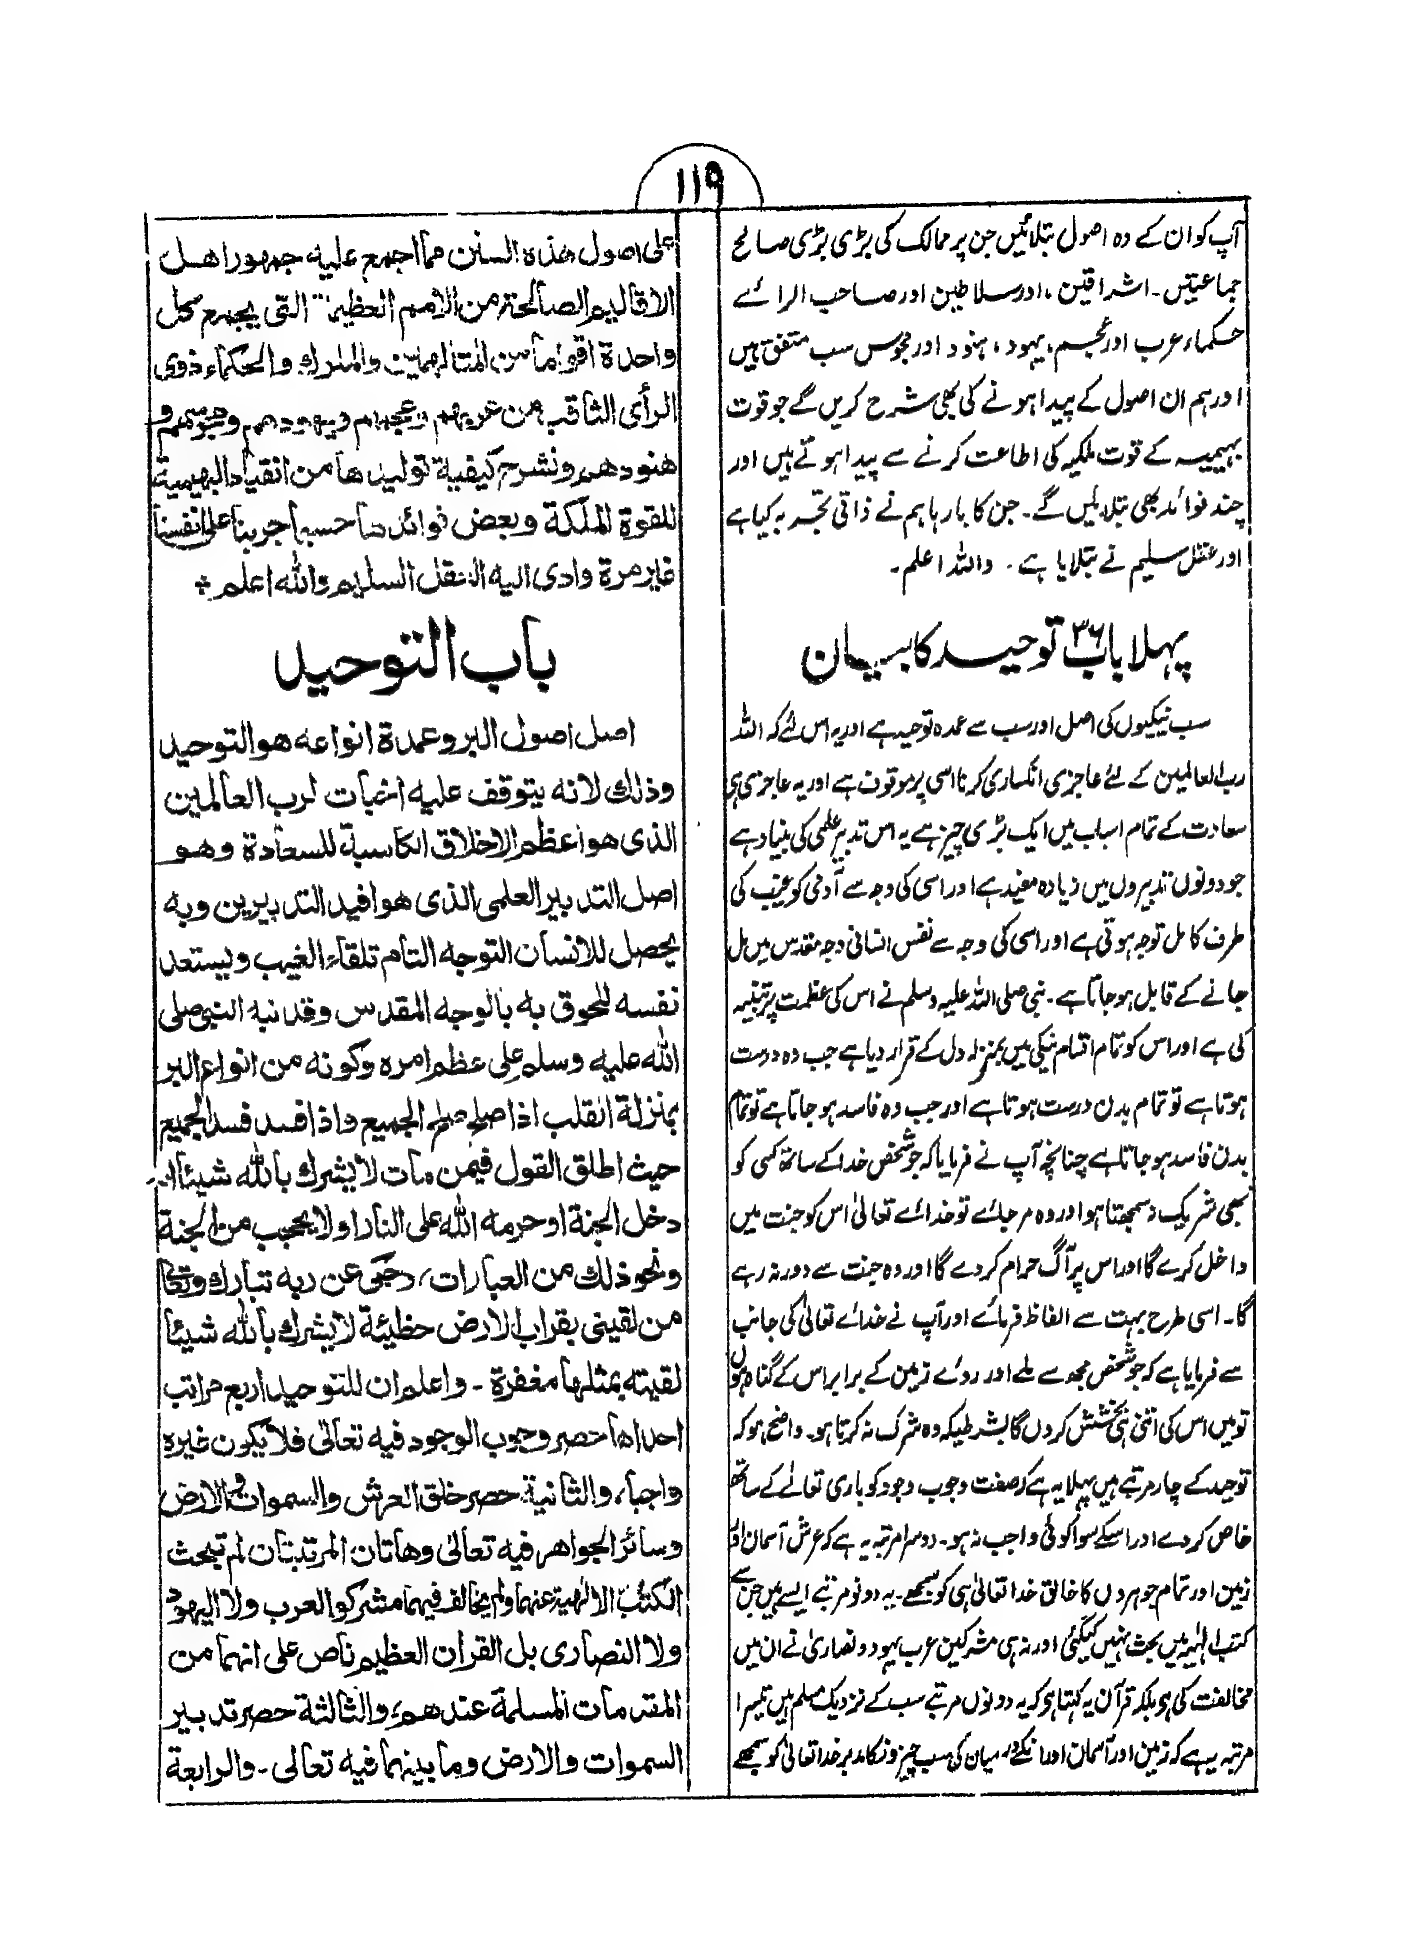 ۱۱۹
آپ کو ان کے وہ اصول بتلائیں جن پر ممالک کی بڑی بڑی صالح
جماعتیں۔ اشراقین، اور سلاطین اور صاحب الرائے
حکماء عرب اور عجم، یہود، ہنود اور مجوس سب متفق ہیں
اور ہم ان اصول کے پیدا ہونے کی بھی شرح کریں گے جو قوت
بہیمیہ کے قوت ملکیہ کی اطاعت کرنے سے پیدا ہوتے ہیں اور
چند فوائد بھی بتلائیں گے۔ جن کا بارہا ہم نے ذاتی تجربہ کیا ہے
اور عقل سلیم نے بتلایا ہے۔ واللہ اعلم۔
پہلا باب ۳۶ توحید کا بیان
سب نیکیوں کی اصل اور سب سے عمدہ توحید ہے اور یہ اس لئے کہ اللہ
رب العالمین کے لئے عاجزی انکساری کرنا اسی پر موقوف ہے اور یہ عاجزی ہی
سعادت کے تمام اسباب میں ایک بڑی چیز ہے یہ اس تدبیر علمی کی بنیاد ہے
جو دونوں تدبیروں میں زیادہ مفید ہے اور اسی کی وجہ سے آدمی کو غیب کی
طرف کامل توجہ ہوتی ہے اور اسی کی وجہ سے نفس انسانی وجہ مقدس میں مل
جانے کے قابل ہو جاتا ہے۔ نبی صلی اللہ علیہ وسلم نے اس کی عظمت پر تنبیہ
کی ہے اور اس کو تمام اقسام نیکی میں بمنزلہ دل کے قرار دیا ہے جب وہ درست
ہوتا ہے تو تمام بدن درست ہوتا ہے اور جب وہ فاسد ہو جاتا ہے تو تمام
بدن فاسد ہو جاتا ہے چنانچہ آپ نے فرمایا کہ جو شخص خدا کے ساتھ کسی کو
بھی شریک نہ سمجھتا ہو اور وہ مر جائے تو خدائے تعالیٰ اس کو جنت میں
داخل کرے گا اور اس پر آگ حرام کر دے گا اور وہ جنت سے دور نہ رہے
گا۔ اسی طرح بہت سے الفاظ فرمائے اور آپ نے خدائے تعالیٰ کی جانب
سے فرمایا ہے کہ جو شخص مجھ سے ملے اور روئے زمین کے برابر اس کے گناہ ہوں
تو میں اس کی اتنی ہی بخشش کردوں گا بشرطیکہ وہ شرک نہ کرتا ہو۔ واضح ہو کہ
توحید کے چار مرتبے ہیں پہلا یہ ہے کہ صفت وجوب وجود کو باری تعالےٰ کے ساتھ
خاص کر دے اور اسکے سوا کوئی واجب نہ ہو۔ دوسرا مرتبہ یہ ہے کہ عرش آسمان اور
زمین اور تمام جوہروں کا خالق خدا تعالیٰ ہی کو سمجھے۔ یہ دونو مرتبے ایسے ہیں جن سے
کتب الہٰیہ میں بحث نہیں کیگئی اور نہ ہی مشرکین عرب یہود و نصاریٰ نے ان میں
مخالفت کی ہو بلکہ قرآن یہ کہتا ہو کہ یہ دونوں مرتبے سب کے نزدیک مسلم ہیں تیسرا
مرتبہ یہ ہے کہ زمین اور آسمان اور انکے درمیان کی سب چیزونکا مدبر خدا تعالیٰ کو سمجھے
علی اصول هذه السنن مما اجمع علیه جمهور اهل
الاقالیم الصالحة من الامم العظیمة التی یجمع کل
واحدة اقواما من المتالهین والملوك والحكماء ذوی
الرأی الثاقب من عربهم وعجمهم ویهودهم ومجوسهم و
هنودهم ونشرح کیفیة تولیدها من انقیاد البهیمیة
للقوة الملکة وبعض فوائدها حسبما جربنا علی انفسنا
غیر مرة وادی الیه العقل السلیم والله اعلم ÷
باب التوحید
اصل اصول البر وعمدة انواعه هو التوحید
وذلك لانه یتوقف علیه اخبات لرب العالمین
الذی هو اعظم الاخلاق الکاسبة للسعادة وهو
اصل التدبیر العلمی الذی هو افید التدبیرین وبه
یحصل للانسان التوجه التام تلقاء الغیب ویستعد
نفسه للحوق به بالوجه المقدس وقد نبه النبی صلی
الله علیه وسلم علی عظم امره وکونه من انواع البر
بمنزلة القلب اذا صلح صلح الجمیع واذا فسد فسد الجمیع
حیث اطلق القول فیمن مات لا یشرك بالله شیئا انه
دخل الجنة او حرمه الله علی النار او لا یحجب من الجنة
ونحو ذلك من العبارات، وحکی عن ربه تبارك وتعالی
من لقینی بقراب الارض خطیئة لا یشرك بالله شیئا
لقیته بمثلها مغفرة۔ واعلم ان للتوحید اربع مراتب
احداها حصر وجوب الوجود فیه تعالی فلا یکون غیره
واجبا، والثانیة حصر خلق العرش والسموات والارض
وسائر الجواهر فیه تعالی وهاتان المرتبتان لم تبحث
الکتب الالٰهیة عنهما ولم یخالف فیهما مشرکو العرب ولا الیهود
ولا النصاری بل القرآن العظیم ناص علی انهما من
المقدمات المسلمة عندهم، والثالثة حصر تدبیر
السموات والارض وما بینهما فیه تعالی۔ والرابعة